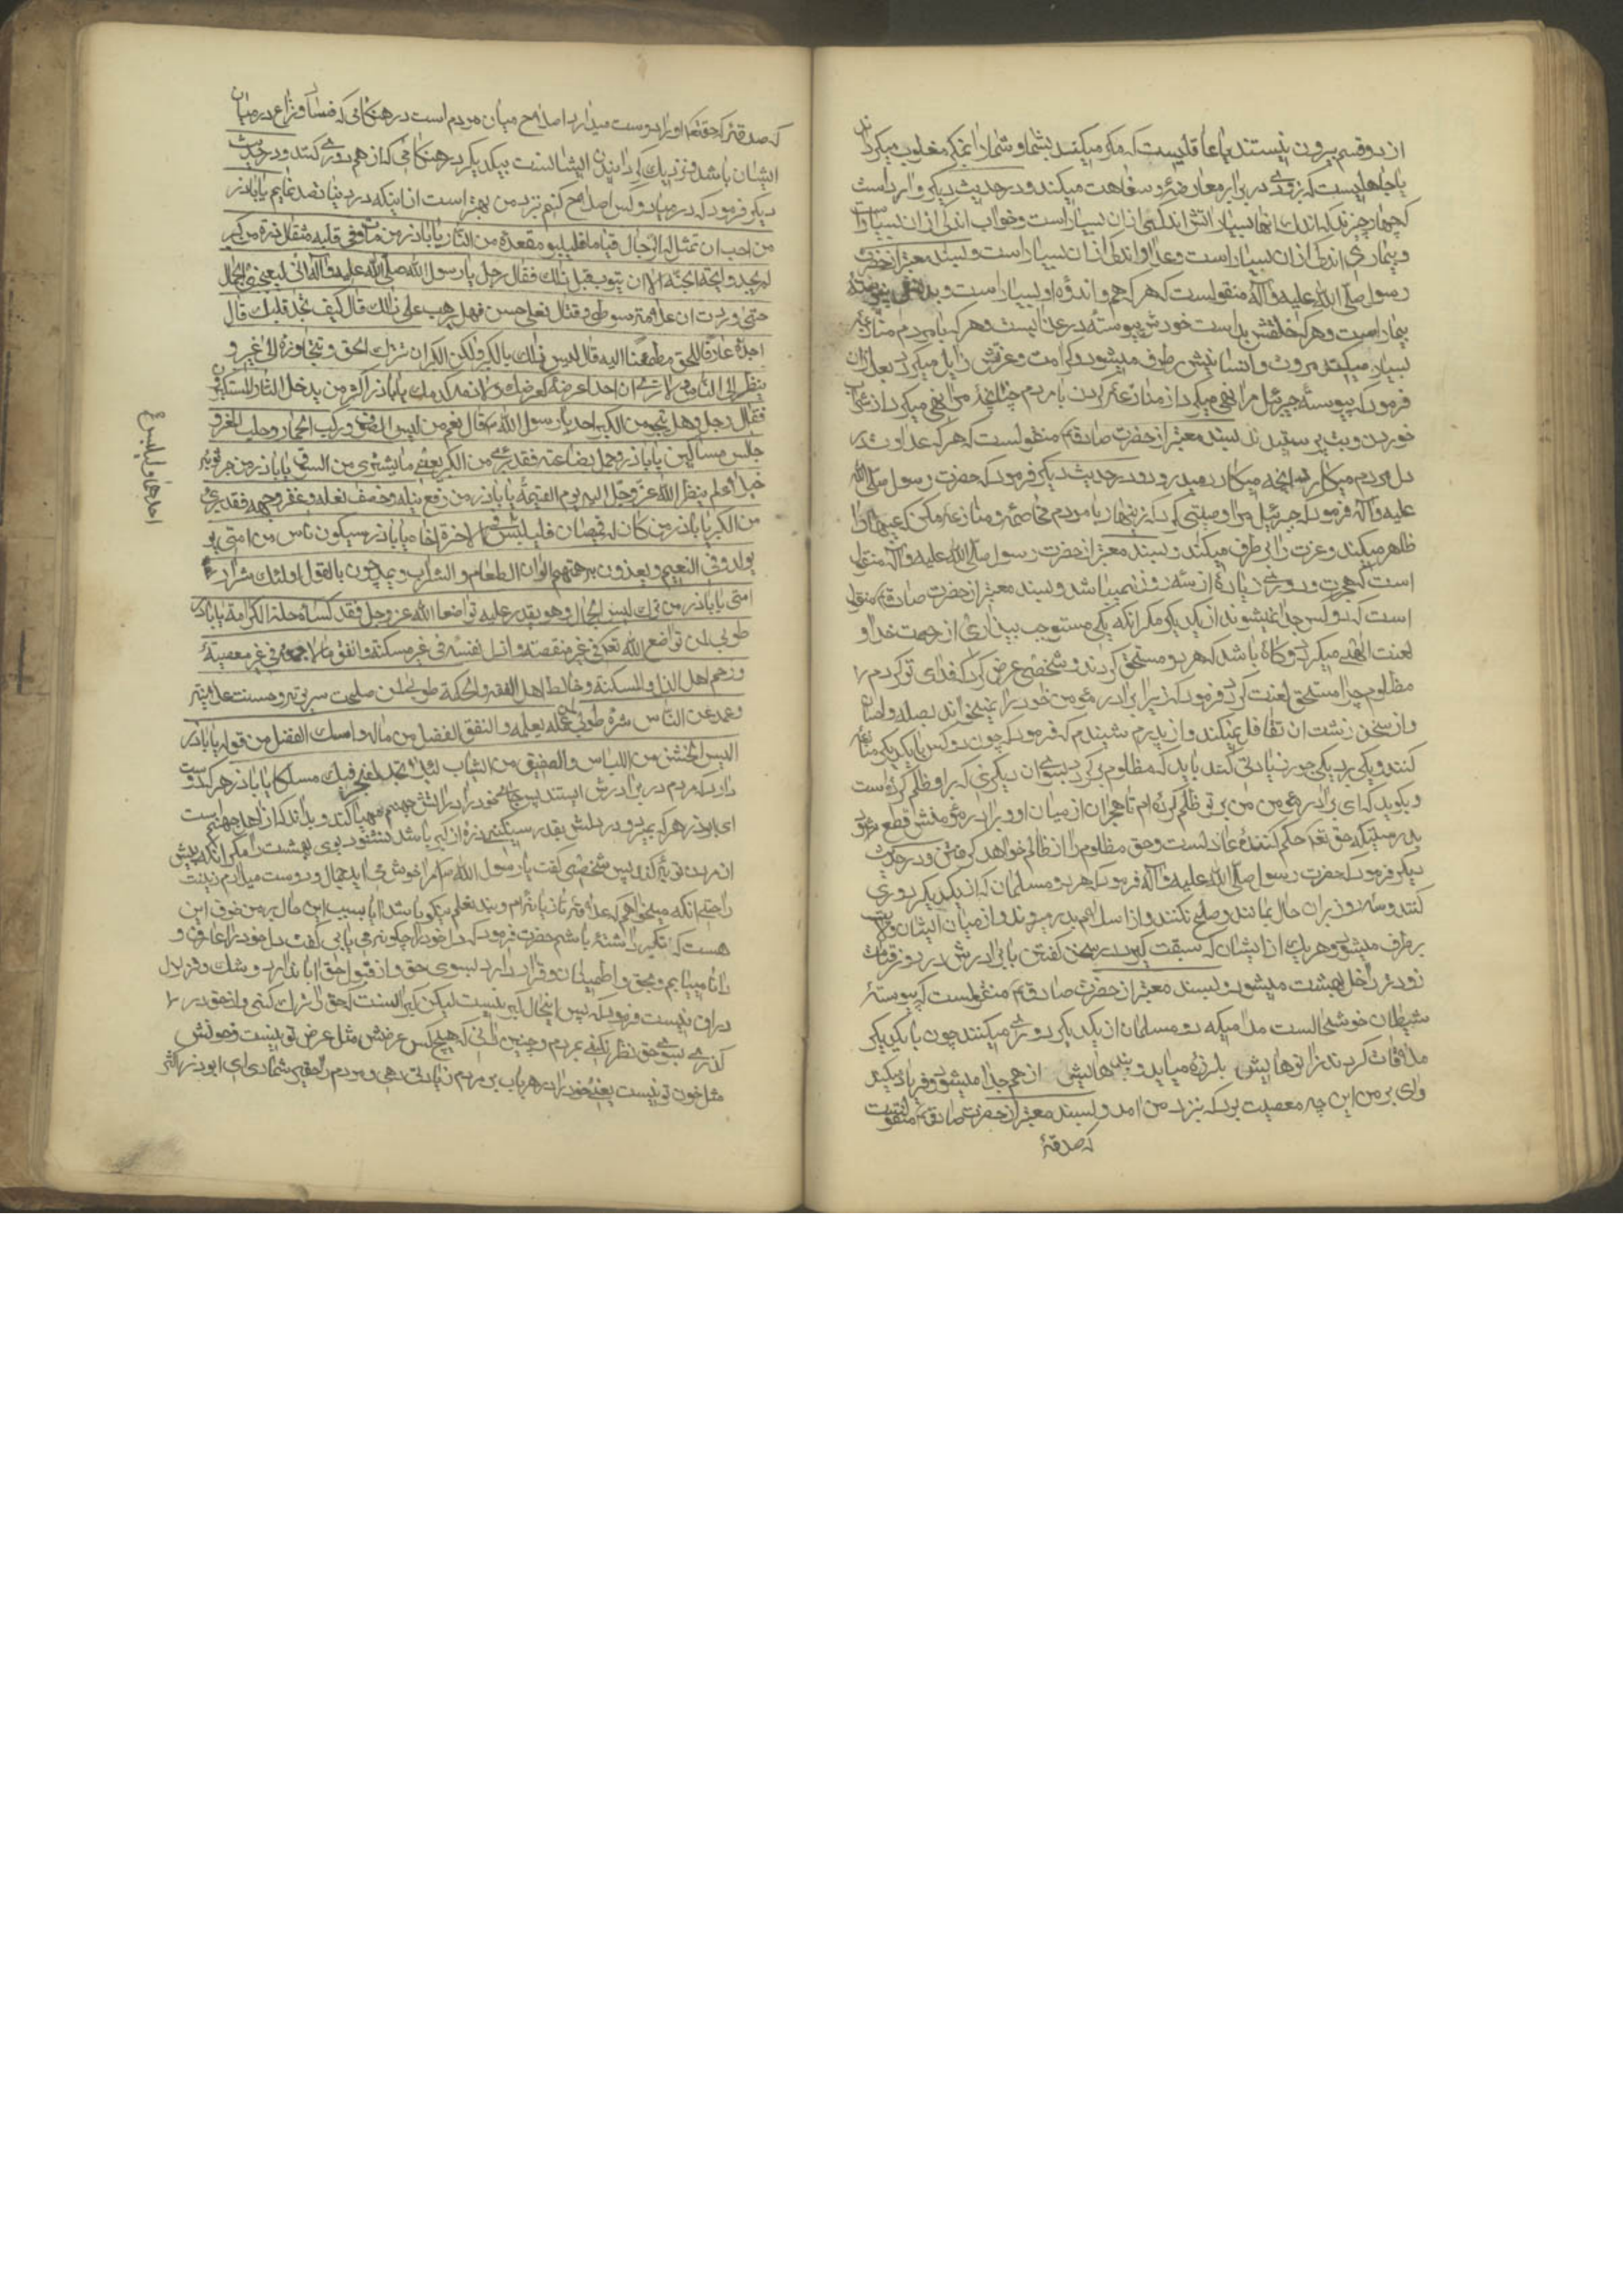 ازین دو قسم بیرون نیستند یا عاقلیست که مکر میکند بشما و شما را مغلوب میکرداند
یا جاهلیست که بزودی در برابر معارضه و سفاهت میکند و در حدیث دیکر وارد است
که چهار چیزند که اندک انها بسیار است اتش اندکی ازان بسیار است و خواب اندکی ازان بسیار است
و بیماری اندکی ازان بسیار است و عداوت اندکی ازان بسیار است و بسند معتبر از حضرت
رسول صلی الله علیه و آله منقولست که هر که هم و اندوه او بسیار است بدنش پیوسته
بیمار است و هر که خلقش بد است خودش پیوسته در عذابست و هر که با مردم منازعه
بسیار میکند مروت و انسانیتش برطرف میشود و کرامت و عزتش زایل میکردد بعد ازان
فرمود که پیوسته جبرئیل مرا نهی میکرد از منازعه کردن با مردم چنانچه مرا نهی میکرد از شراب
خوردن و بت پرستیدن و بسند معتبر از حضرت صادق منقولست که هر که عداوت در
دل مردم میکارد انچه میکارد میدرود و در حدیث دیکر فرمود که حضرت رسول صلی الله
علیه و آله فرمود که جبرئیل مرا وصیتی کرد که زینهار با مردم مخاصمه و منازعه مکن که عیبها را
ظاهر میکند و عزت را برطرف میکند و بسند معتبر از حضرت رسول صلی الله علیه و آله منقول
است که هجرت و دوری زیاده از سه روز نمیباشد و بسند معتبر از حضرت صادق منقول
است که دو کس جدا نمیشوند از یکدیکر مکر انکه یکی مستوجب بیزاری از جهت خدا و
لعنت الهی میکردد و کاه باشد که هر دو مستحق کردند شخصی عرض کرد که فدای تو کردم
مظلوم چرا مستحق لعنت کردد فرمود که زیرا برادر مؤمن خود را نمیخواند بصله و احسان
و از سخن زشت ان تغافل نمیکند و از پدرم شنیدم که فرمود که چون دو کس با یکدیکر منازعه
کنند و یکی بر دیکری جور و زیادتی کند باید که مظلوم برکردد بسوی ان دیکری که بر او ظلم کرده است
و بکوید که ای برادر مؤمن من بر تو ظلم کرده ام تا هجران از میان او و برادر مؤمنش قطع شود
بدرستیکه حق تعالی حکم کننده عادلست و حق مظلوم را از ظالم خواهد کرفت و در حدیث
دیکر فرمود که حضرت رسول صلی الله علیه و آله فرمود که هر دو مسلمان که از یکدیکر دوری
کنند و سه روز بران حال بمانند و صلح نکنند از اسلام بدر میروند و از میان ایشان ولایت
برطرف میشود و هر یک از ایشان که سبقت کیرد در سخن کفتن با برادرش در روز قیامت
زودتر داخل بهشت میشود و بسند معتبر از حضرت صادق منقولست که پیوسته
شیطان خوشحالست مدامیکه دو مسلمان از یکدیکر دوری میکنند چون با یکدیکر
ملاقات کردند زانوهایش بلرزه میاید و بندهایش از هم جدا میشود و فریاد میکند
وای بر من این چه معصیت بود که نزد من امد و بسند معتبر از حضرت صادق منقولست
که صدقهٔ
که صدقهٔ که حقتعالی او را دوست میدارد اصلاح میان مردم است در هنکامی که فساد و نزاع در میان
ایشان باشد و نزدیک کردانیدن ایشانست بیکدیکر در هنکامی که از هم دوری کنند و در حدیث
دیکر فرمود که در میان دو کس اصلاح کنم نزد من بهتر است از اینکه دو دینار تصدق نمایم یا باذر
من احب ان تمثل له الرجال قیاما فلیتبوء مقعده من النار یا باذر من مات و فی قلبه مثقال ذرة من کبر
لم یجد رایحة الجنة الا ان یتوب قبل ذلک فقال رجل یا رسول الله صلی الله علیه و آله انی لیعجبنی الجمال
حتی وددت ان علاقة سوطی و قبال نعلی حسن فهل یرهب علی ذلک قال کیف تجد قلبک قال
اجده عارفا للحق مطمئنا الیه قال لیس ذلک بالکبر ولکن الکبر ان تترک الحق و تتجاوزه الی غیره و
تنظر الی الناس ولا تری ان احدا عرضه کعرضک ولا دمه کدمک یا باذر اکثر من یدخل النار المستکبرون
فقال رجل و هل ینجو من الکبر احد یا رسول الله قال نعم من لبس الصوف و رکب الحمار و حلب العنز و
جالس مساکین یا باذر من حمل بضاعته فقد برئ من الکبر یعنی ما یشتری من السوق یا باذر من جر ثوبه
خیلاء لم ینظر الله عز و جل الیه یوم القیمة یا باذر من رفع ذیله و خصف نعله و عفر وجهه فقد برئ
من الکبر یا باذر من کان له قمیصان فلیلبس الاخر اخاه یا باذر سیکون ناس من امتی
یولدون فی النعیم و یغذون به همتهم الوان الطعام و الشراب و یمدحون بالقول اولئک شرار
امتی یا باذر من ترک لبس الجمال و هو یقدر علیه تواضعا لله عز و جل فقد کساه حلة الکرامة یا باذر
طوبی لمن تواضع لله تعالی فی غیر منقصة و اذل نفسه فی غیر مسکنة و انفق مالا جمعه فی غیر معصیة
و رحم اهل الذل و المسکنة و خالط اهل الفقه و الحکمة طوبی لمن صلحت سریرته و حسنت علانیته
و عزل عن الناس شره طوبی لمن عمل بعلمه و انفق الفضل من ماله و امسک الفضل من قوله یا باذر
البس الخشن من اللباس و الصفیق من الثیاب لئلا یجد الفخر فیک مسلکا یا باذر هر که دوست
دارد که مردم در برابرش ایستند پس جای خود را در اتش جهنم مهیا کند و بداند که از اهل جهنم است
ای ابوذر هر که بمیرد و در دلش بقدر سنکینی ذرهٔ از کبر باشد نشنود بوی بهشت را مکر انکه پیش
ازمردن توبه کند پس شخصی کفت یا رسول الله مرا خوش می اید جمال و دوست میدارم زینت
را حتی انکه میخواهم که علاقهٔ تازیانه ام و بند نعلم نیکو باشد ایا بسبب این حال بر من خوف این
هست که تکبر داشته باشم حضرت فرمود که دل خود را چکونه می یابی کفت دل خود را عارف و
دانا مییابم بحق و اطمینان و قرار دارد بسوی حق و از قبول حق ابا ندارد و شک و تزلزل
دران نیست فرمود که پس اینحال کبر نیست لیکن کبر انست که حق را ترک کنی و از حق در
کذری بسوی غیر حق و نظر کنی بمردم و چنین دانی که هیچکس عرضش مثل عرض تو نیست و خونش
مثل خون تو نیست یعنی خود را در هر باب بر مردم زیادتی دهی و مردم را حقیر شماری ای ابوذر اکثر
احدهما ولیلبس